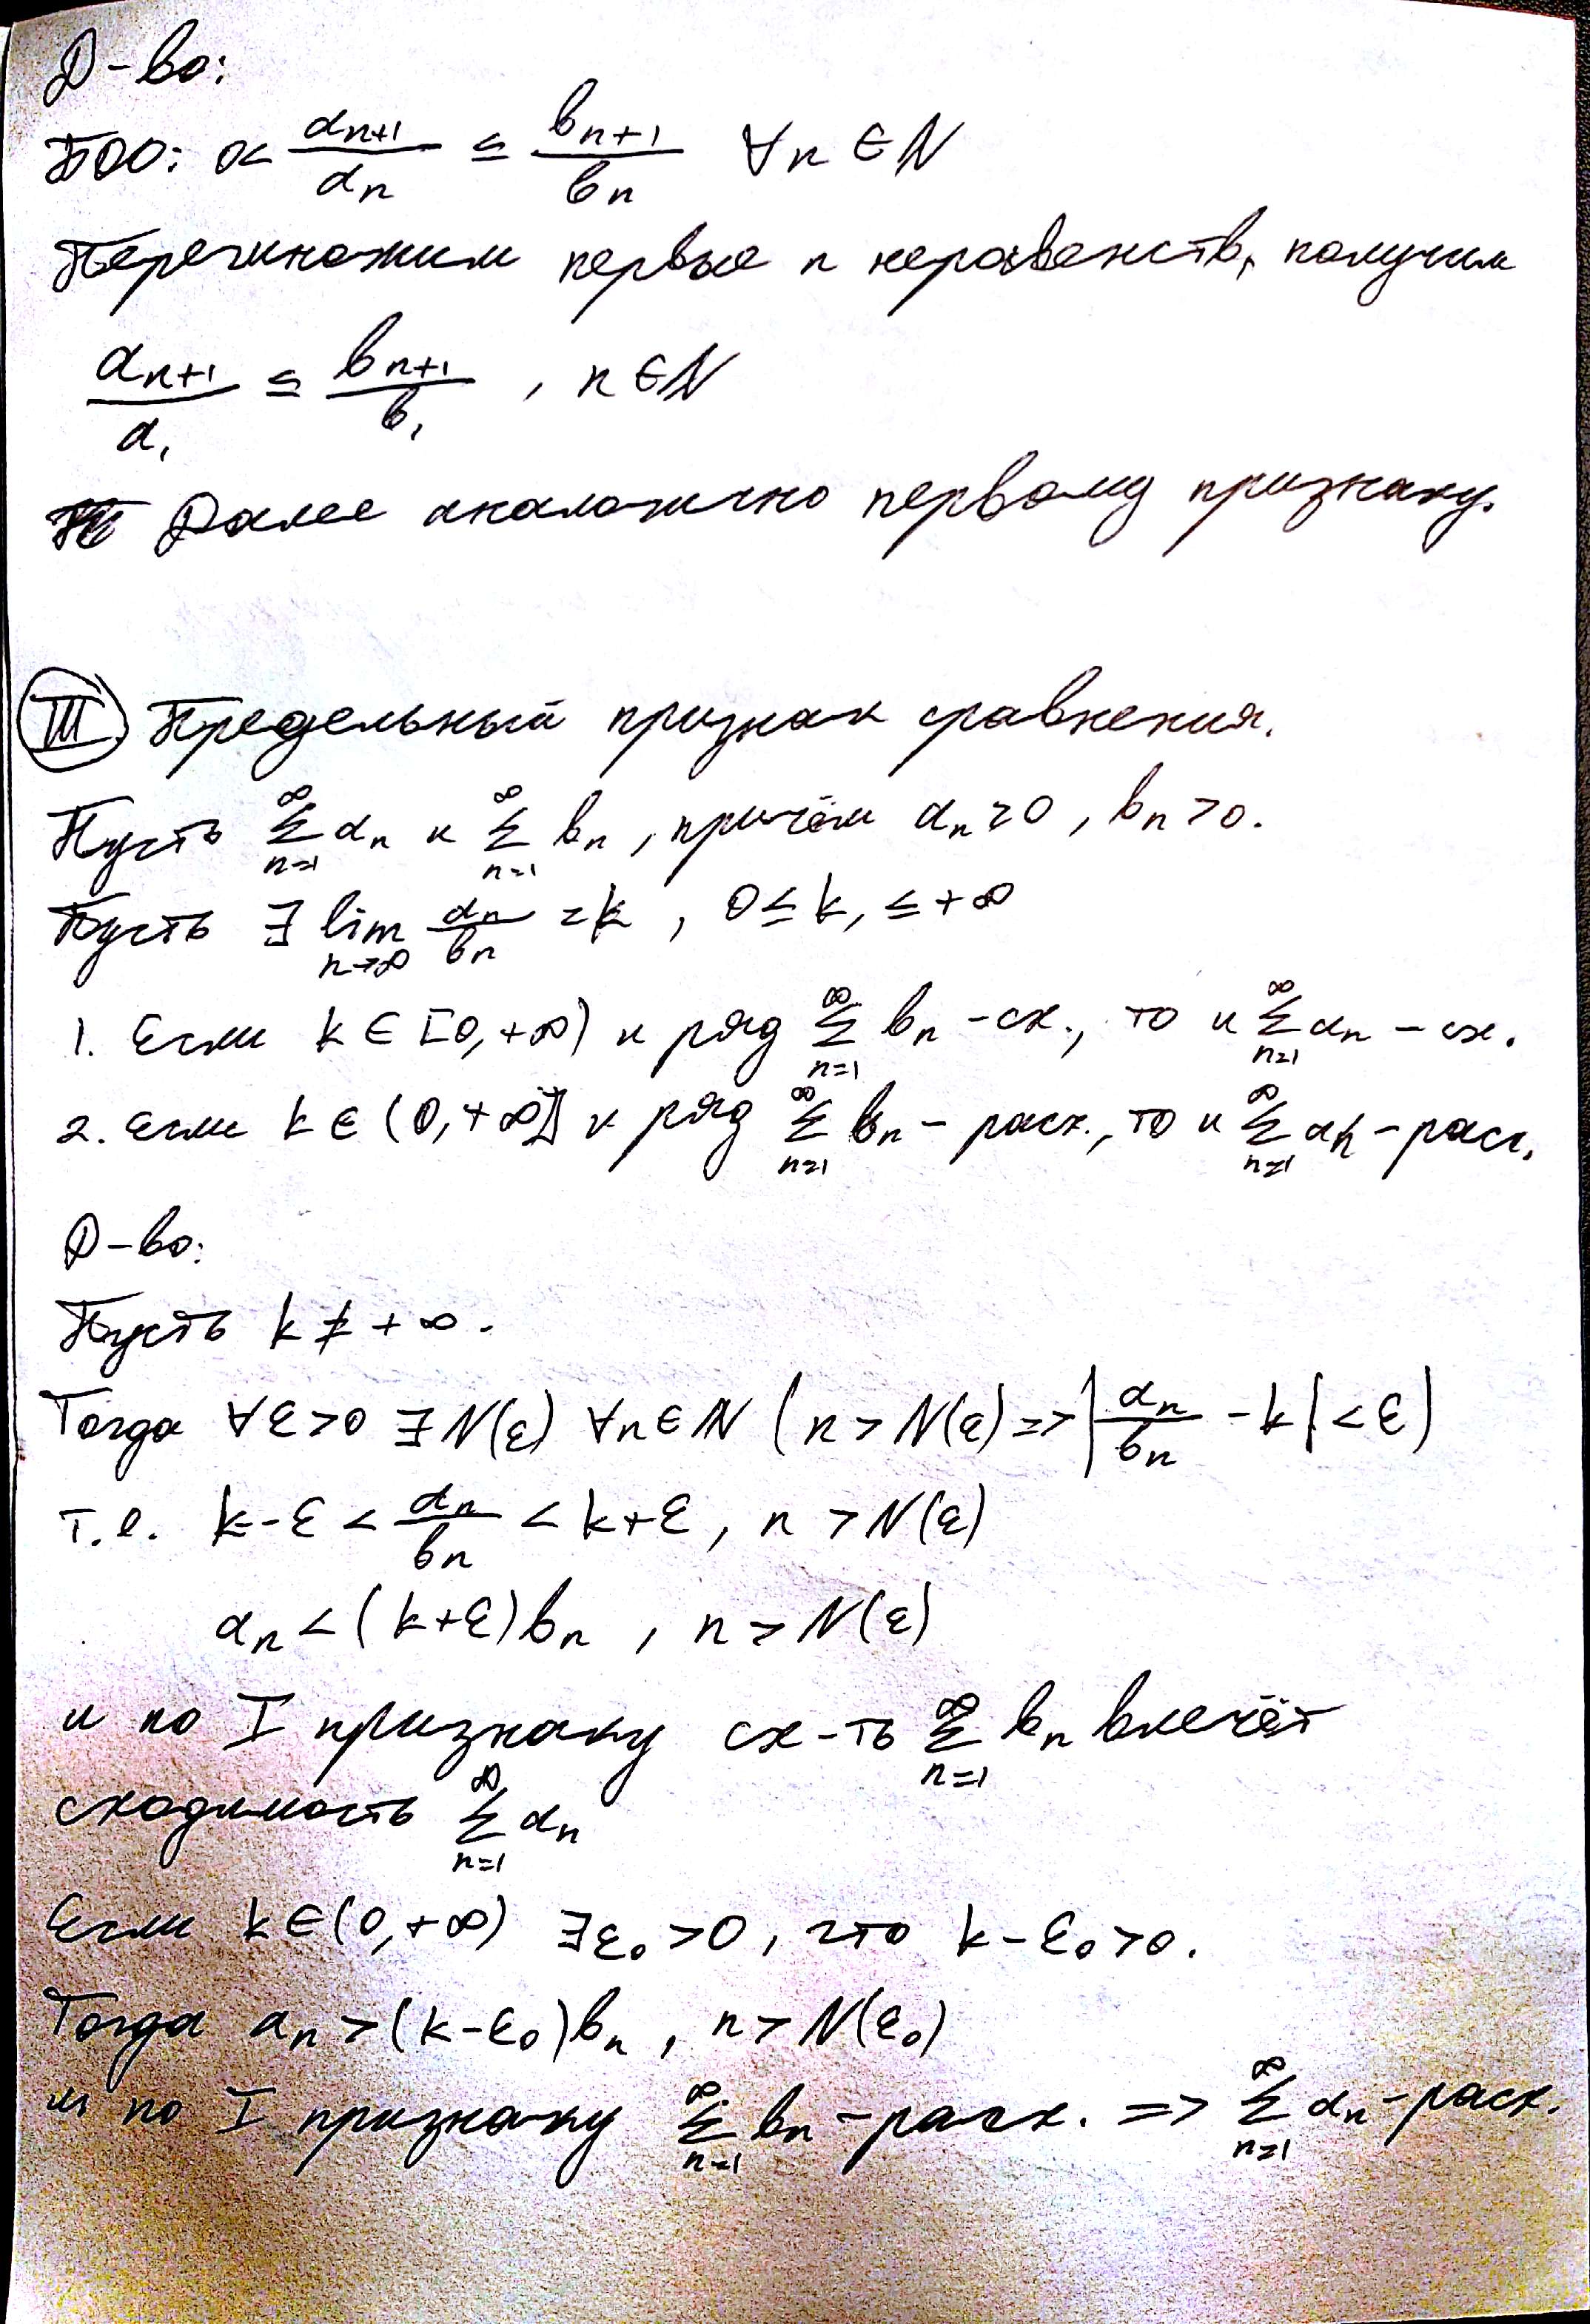 Д-во:
БОО: 0 < a_{n+1}/a_n ≤ b_{n+1}/b_n ∀n ∈ N
Перемножим первые n неравенств, получим
a_{n+1}/a_1 ≤ b_{n+1}/b_1 , n ∈ N
Далее аналогично первому признаку.
III Предельный признак сравнения.
Пусть ∑_{n=1}^∞ a_n и ∑_{n=1}^∞ b_n , причём a_n ≥ 0 , b_n > 0.
Пусть ∃ lim_{n→∞} a_n/b_n = k , 0 ≤ k, ≤ +∞
1. Если k ∈ [0,+∞) и ряд ∑_{n=1}^∞ b_n - сх., то и ∑_{n=1}^∞ a_n - сх.
2. Если k ∈ (0,+∞] и ряд ∑_{n=1}^∞ b_n - расх., то и ∑_{n=1}^∞ a_n - расх.
Д-во:
Пусть k ≠ +∞.
Тогда ∀ε>0 ∃N(ε) ∀n∈N (n > N(ε) => |a_n/b_n - k| < ε)
т.е. k-ε < a_n/b_n < k+ε , n > N(ε)
a_n < (k+ε)b_n , n > N(ε)
и по I признаку сх-ть ∑_{n=1}^∞ b_n влечёт
сходимость ∑_{n=1}^∞ a_n
Если k ∈ (0,+∞) ∃ε_0 > 0, что k-ε_0 > 0.
Тогда a_n > (k-ε_0)b_n , n > N(ε_0)
и по I признаку ∑_{n=1}^∞ b_n - расх. => ∑_{n=1}^∞ a_n - расх.